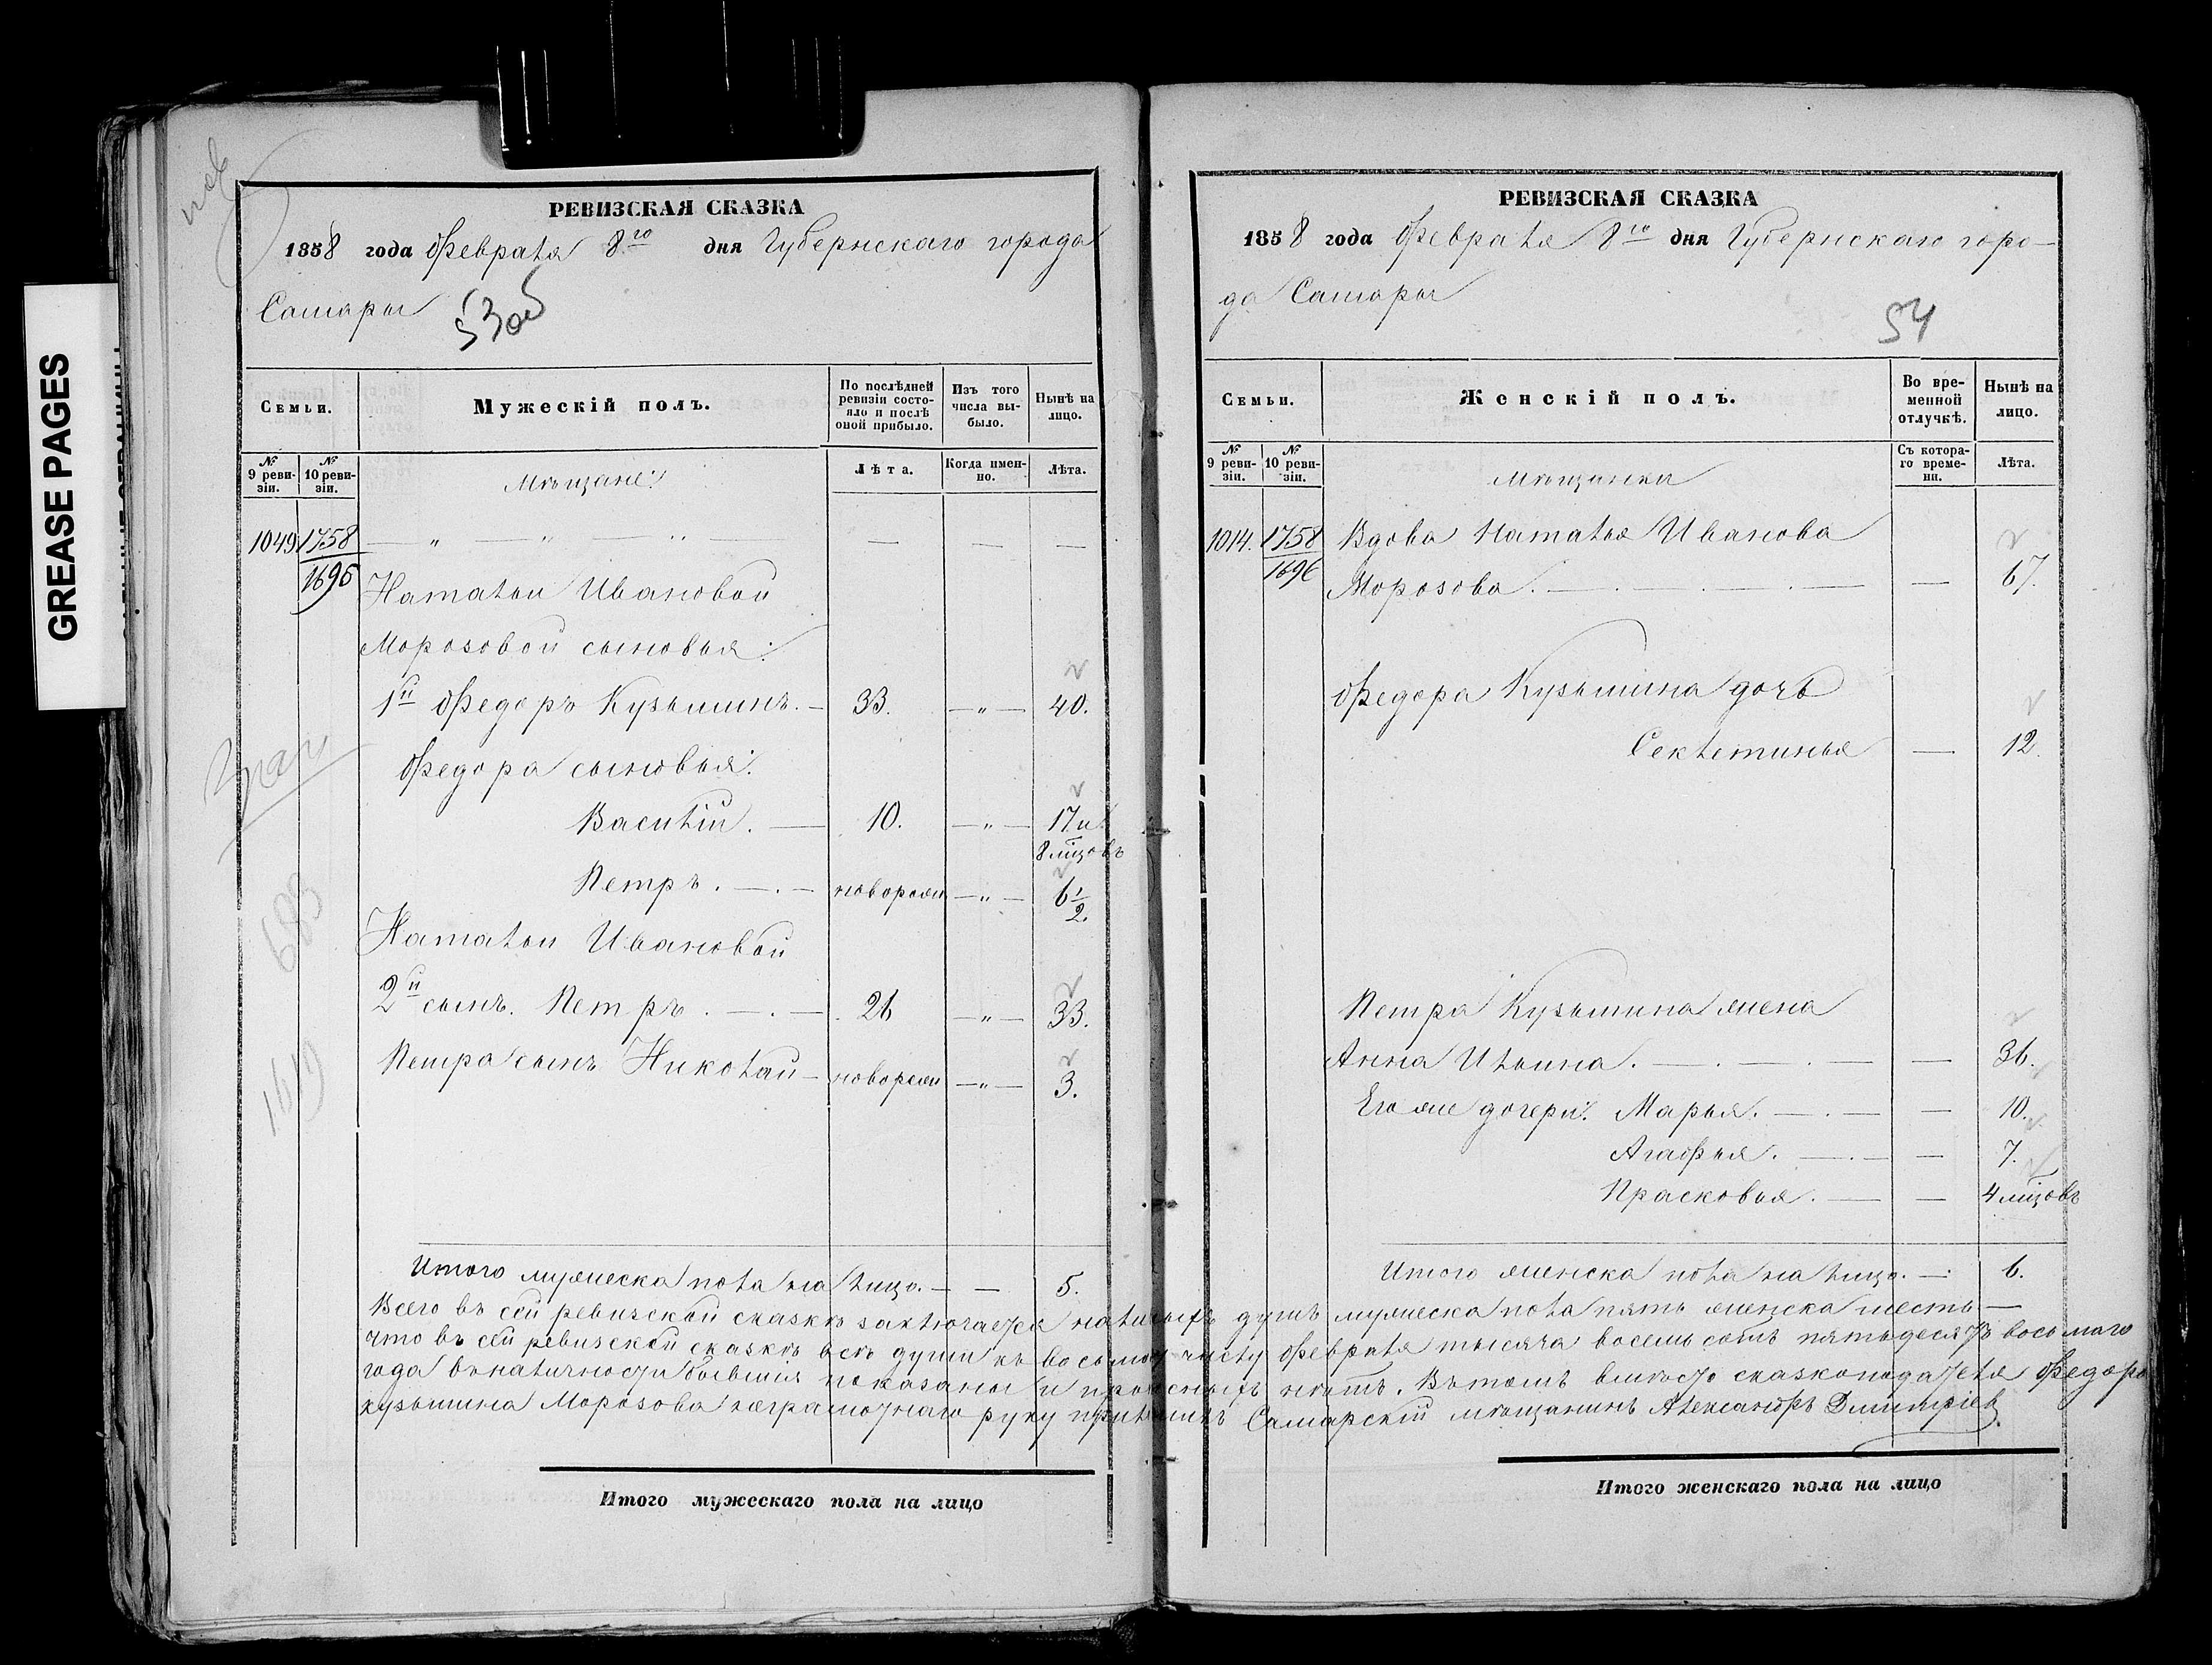 GREASE PAGES
РЕВИЗСКАЯ СКАЗКА
1858 года Февраля 8го дня Губернскаго города
Самары
53об
Семьи.
Мужескій полъ.
По послѣдней ревизіи состояло и послѣ оной прибыло.
Изъ того числа выбыло.
Нынѣ на лицо.
№ 9 ревизіи.
№ 10 ревизіи.
Мѣщане:
Лѣта.
Когда именно.
Лѣта.
1049. 1758 — „ — „ — „ — — — —
1695 Натальи Ивановой
Морозовой сыновья:
1й Федоръ Кузьминъ. — 33. — „ — 40.
Федора сыновья:
Василій. — 10. — „ — 17 и
8 мцовъ
Петръ. — . — новорож — „ — 6 1/2.
Натальи Ивановой
2й сынъ. Петръ . — . — 26 — „ — 33.
Петра сынъ Николай — новорож — „ — 3.
683
1619
Итого мужеска пола на лицо. — — 5.
РЕВИЗСКАЯ СКАЗКА
1858 года Февраля 8го дня Губернскаго горо-
да Самары
54
Семьи.
Женскій полъ.
Во временной отлучкѣ.
Нынѣ на лицо.
№ 9 ревизіи.
№ 10 ревизіи.
мѣщанки
Съ котораго времени.
Лѣта.
1014. 1758 Вдова Наталья Иванова
1696 Морозова. — . — . — . — — 67.
Федора Кузьмина дочь
Секлетинья — 12.
Петра Кузьмина жена
Анна Ильина. — . — . — — 36.
Его же дочери: Марья. — . — — 10.
Агафья. — . — — 7.
Прасковья. — — 4 мцовъ
Итого женска пола на лицо. — 6.
Всего въ сей ревизской сказкѣ заключается наличныхъ душъ мужеска пола пять женска шесть —
что въ сей ревизской сказкѣ всѣ души къ восьмому числу Февраля тысяча восемь сотъ пятьдесятъ восьмаго
года въ наличности бывшія показаны и прописныхъ нѣтъ. Въ томъ вмѣсто сказкоподателя Федора
Кузьмина Морозова неграмотнаго руку приложилъ Самарскій мѣщанинъ Александръ Дмитріев
Итого мужескаго пола на лицо
Итого женскаго пола на лицо